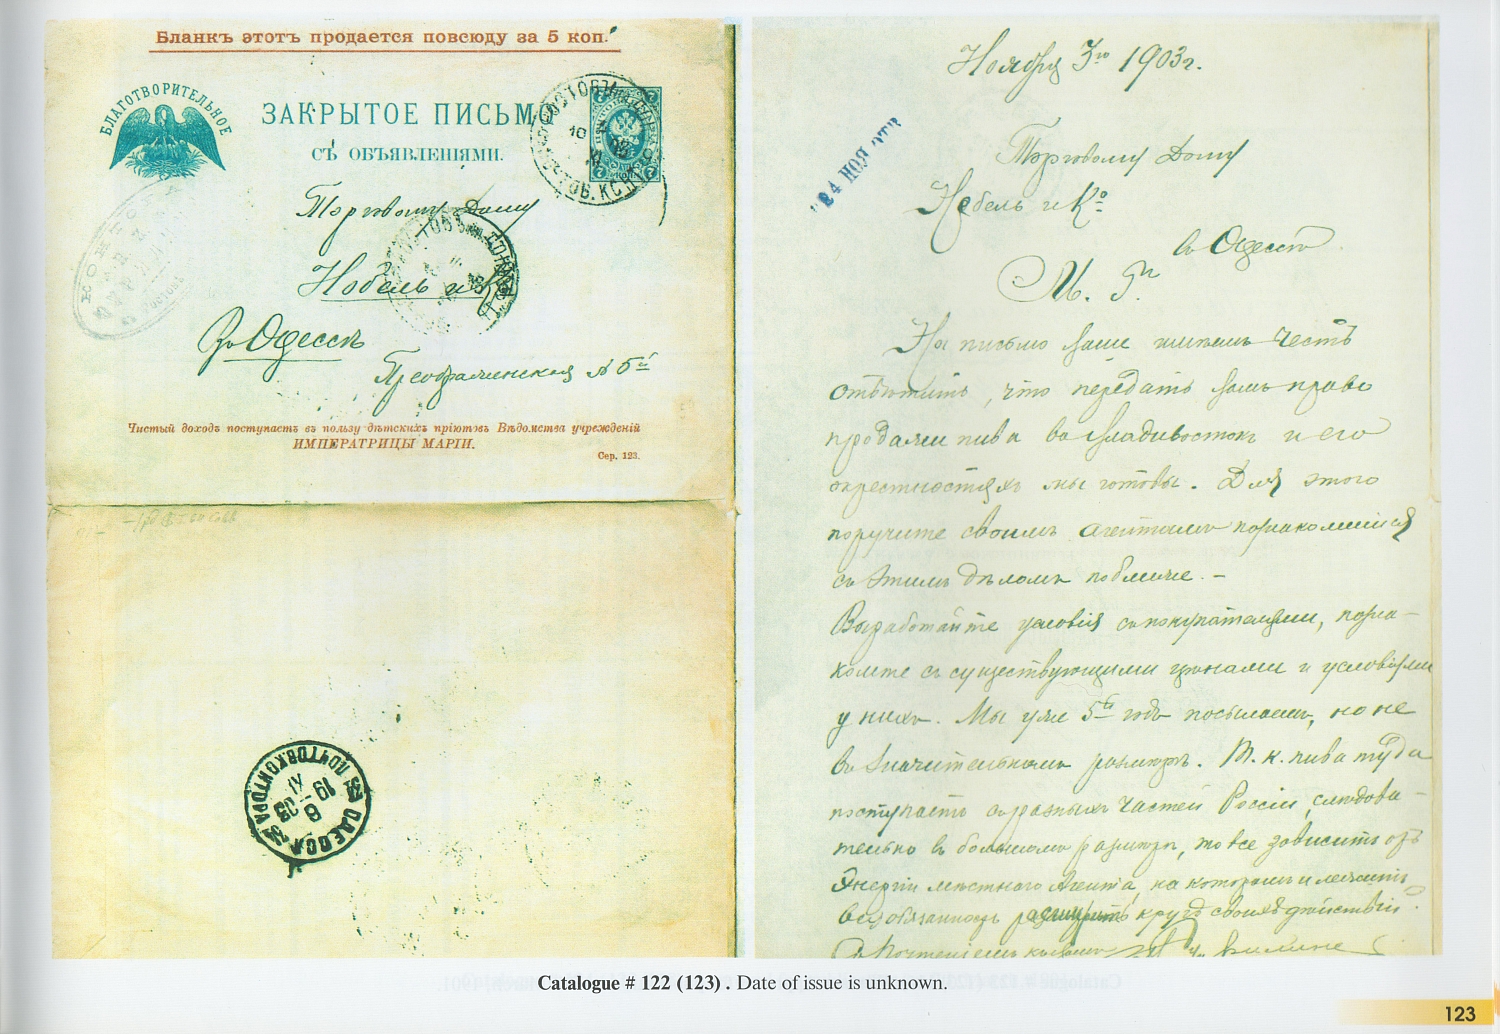 Бланкъ этотъ продается повсюду за 5 коп.
БЛАГОТВОРИТЕЛЬНОЕ
ЗАКРЫТОЕ ПИСЬМО
СЪ ОБЪЯВЛЕНІЯМИ.
Торговому Дому
Нобель и К
Въ Одессѣ
Преображенская № 5й
Чистый доходъ поступаетъ въ пользу дѣтскихъ пріютовъ Вѣдомства учрежденій
ИМПЕРАТРИЦЫ МАРІИ.
Сер. 123.
ОДЕССА
ПОЧТОВ. КОНТОРА
Ноября 3го 1903 г.
24 НОЯ
Торговому Дому
Небель и Ко
въ Одессѣ
М. Гг
На письмо Ваше имѣемъ честь
отвѣтить, что передать Вамъ право
продажи пива во Владивостокѣ и его
окрестностяхъ мы готовы. Для этого
поручите своимъ агентамъ познакомиться
съ этимъ дѣломъ поближе. –
Выработайте условія съ покупателями, позна-
комте съ существующими цѣнами и условіями
у нихъ. Мы уже 5й годъ посылаемъ, но не
въ значительномъ размѣрѣ. Т. к. пива туда
поступаетъ съ разныхъ частей Россіи, слѣдова-
тельно въ большомъ размѣрѣ, то все зависитъ отъ
Энергіи мѣстнаго Агента, на которомъ и лежитъ
вся обязанность расширить кругъ своихъ дѣйствій.
Съ Почтеніемъ
Catalogue # 122 (123) . Date of issue is unknown.
123